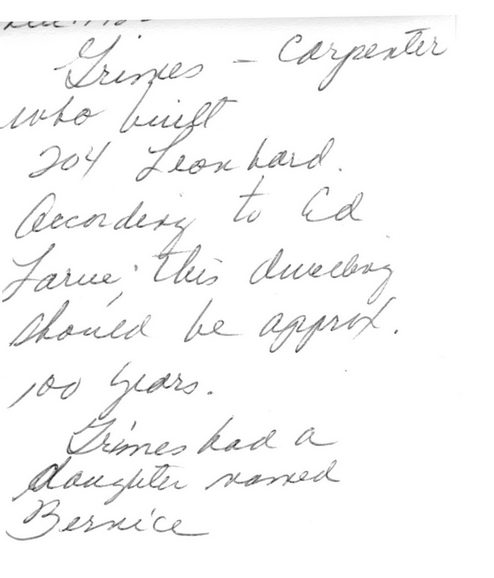 Grimes – Carpenter
who built
204 Leonhard.
According to Ed
Larue; this dwelling
should be approx.
100 years.
Grimes had a
daughter named
Bernice